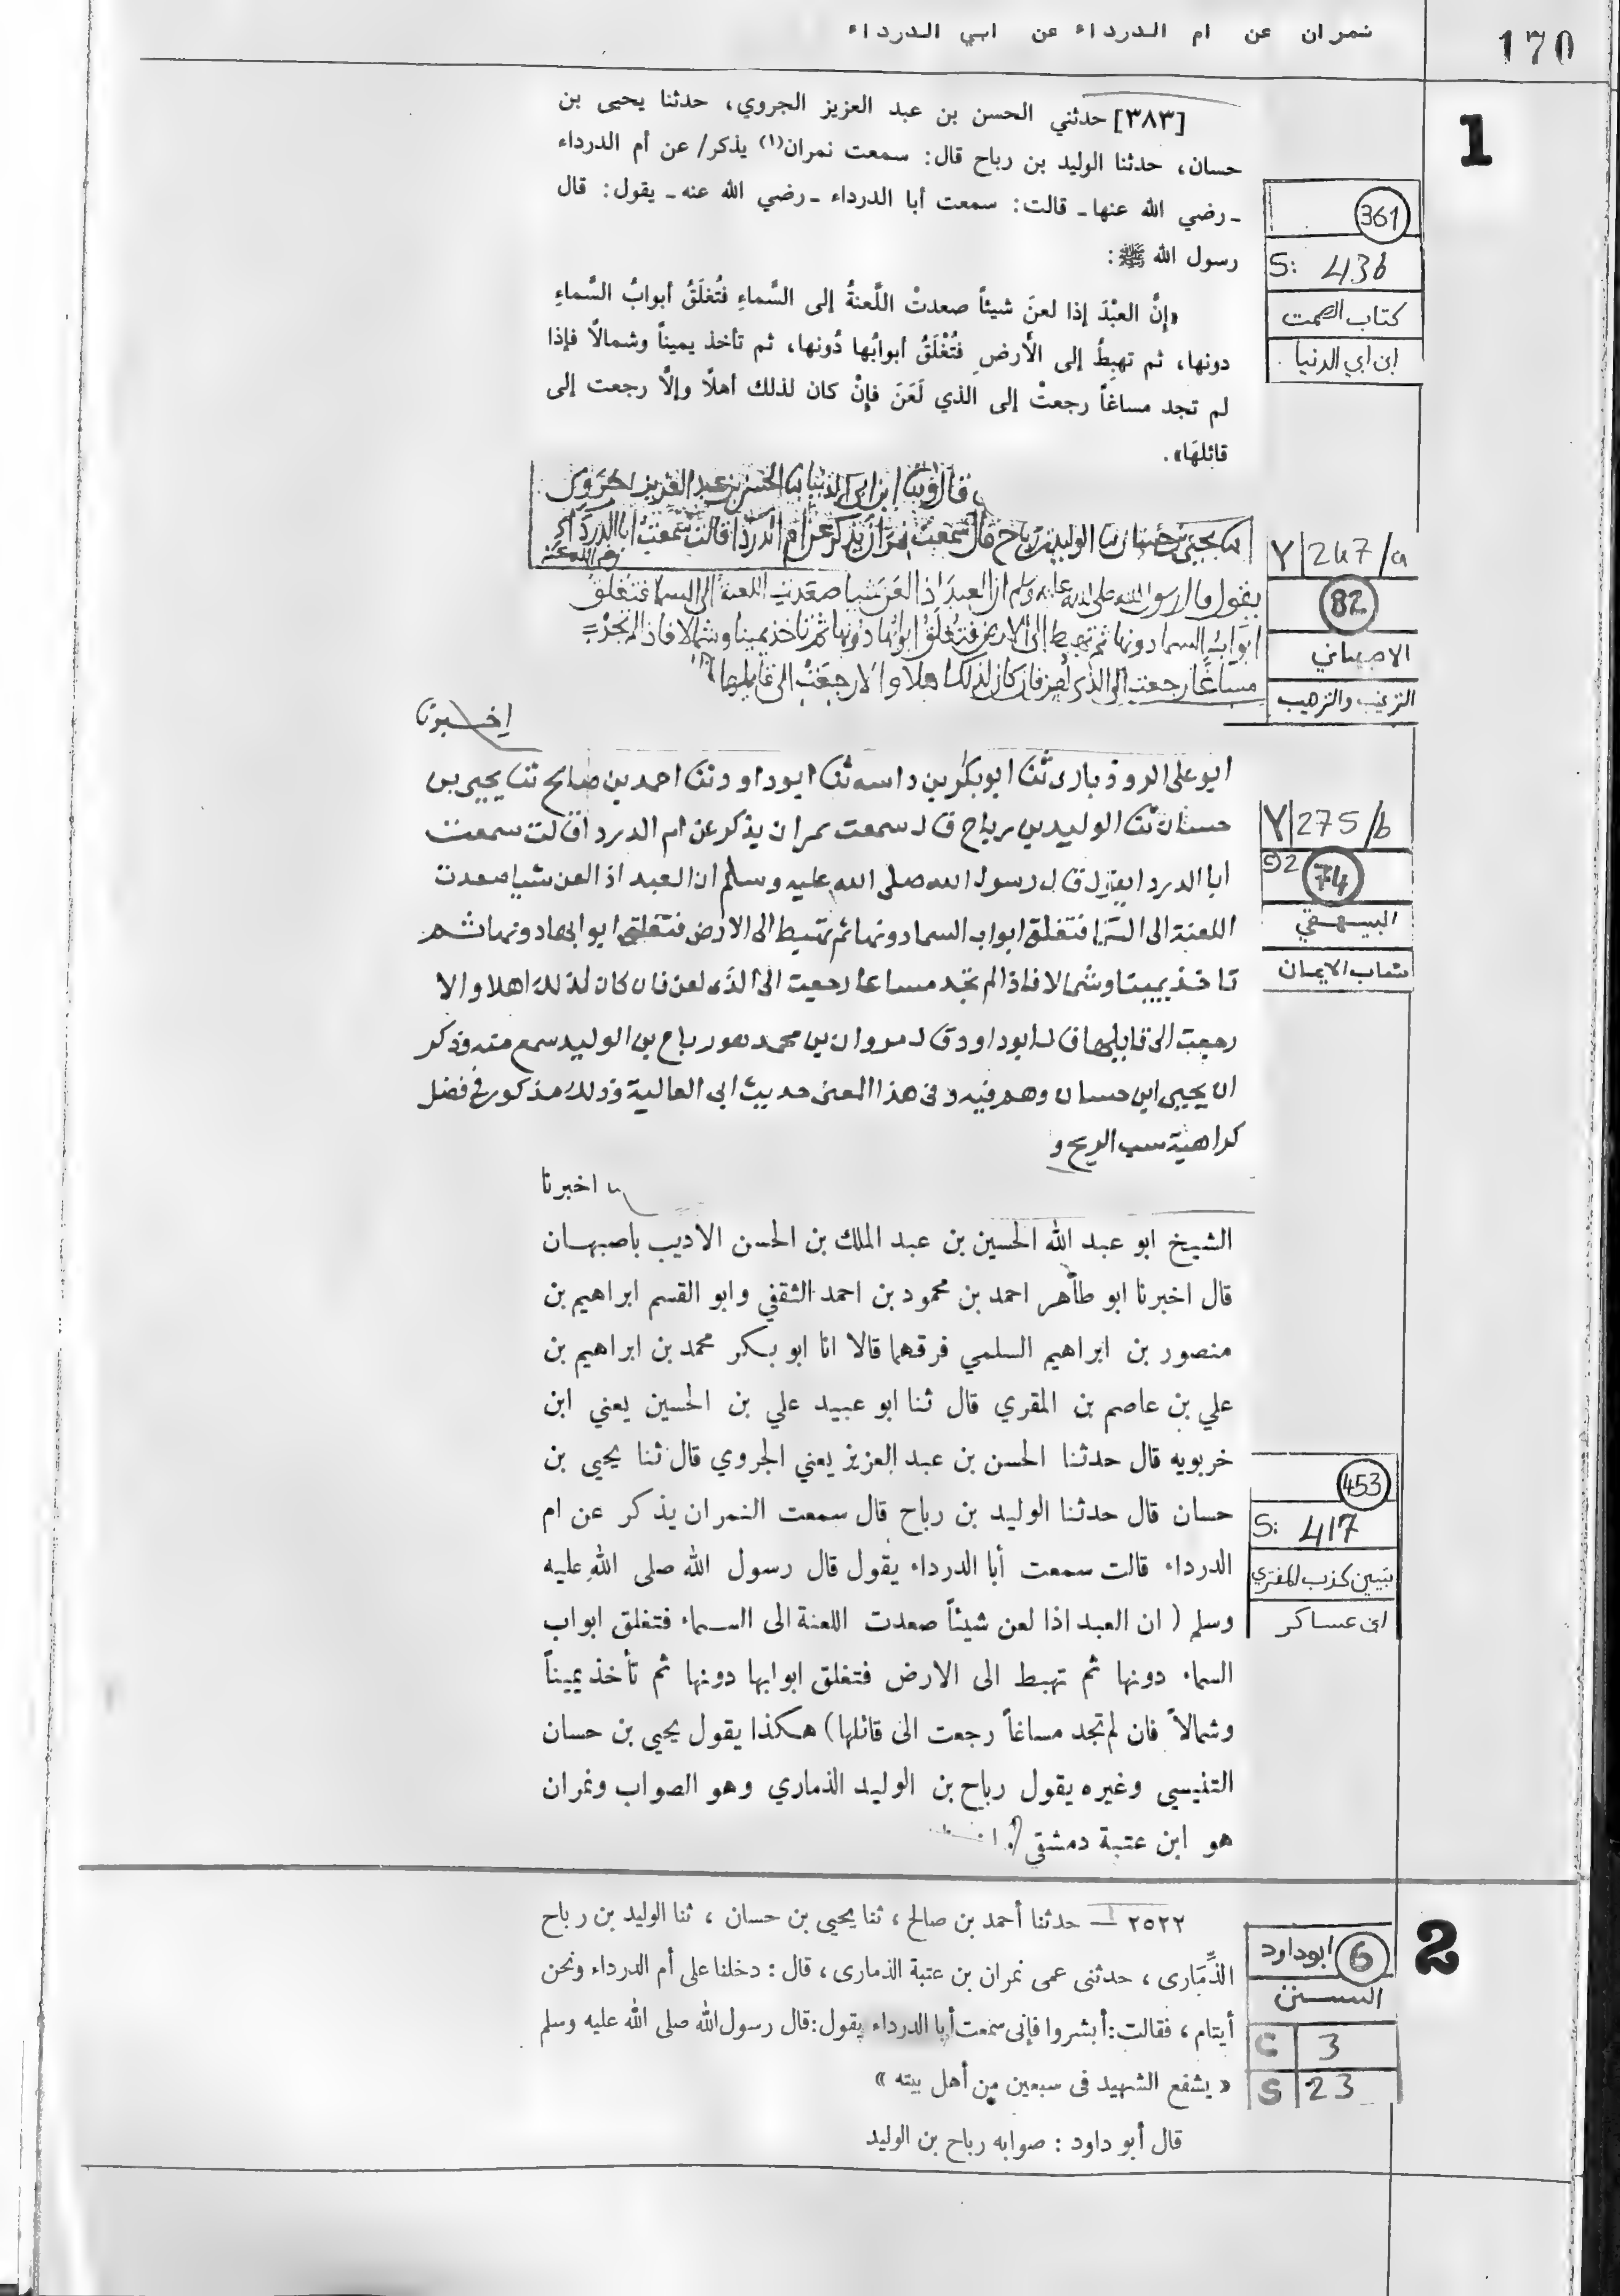 نمران عن ام الدرداء عن ابي الدرداء
170
1
[٣٨٣] حدثني الحسن بن عبد العزيز الجروي، حدثنا يحيى بن
حسان، حدثنا الوليد بن رباح قال: سمعت نمران(١) يذكر/ عن أم الدرداء
ـ رضي الله عنها ـ قالت: سمعت أبا الدرداء ـ رضي الله عنه ـ يقول: قال
رسول الله ﷺ:
«إنَّ العبْدَ إذا لعنَ شيئاً صعدتْ اللَّعنةُ إلى السَّماءِ فتُغلَقُ أبوابُ السَّماءِ
دونها، ثم تهبِطُ إلى الأرضِ فتُغْلَقُ أبوابُها دُونها، ثم تأخذ يميناً وشمالًا فإذا
لم تجد مساغاً رجعتْ إلى الذي لَعَنَ فإنْ كان لذلك أهلًا وإلَّا رجعت إلى
قائلهَا».
361
S: 436
كتاب الصمت
ابن ابي الدنيا
قال وثنا ابن ابي الدنيا ثنا الحسن بن عبد العزيز الجروي
ثنا يحيى بن حسان ثنا الوليد بن رباح قال سمعت نمران يذكر عن ام الدردا قالت سمعت ابا الدرداء
رضي الله عنه
يقول قال رسول الله صلى الله عليه وسلم ان العبد اذا لعن شيا صعدت اللعنة الى السما فتغلق
ابواب السما دونها ثم تهبط الى الارض فتغلق ابوابها دونها ثم تاخذ يمينا وشمالا فاذا لم تجد
مساغا رجعت الى الذي لعن فان كان لذلك اهلا والا رجعت الى قايلها
Y 247/a
82
الاصبهاني
الترغيب والترهيب
اخبرنا
ابو على الروذبارى ثنا ابو بكر بن داسه ثنا ابو داود ثنا احمد بن صالح ثنا يحيى بن
حسان ثنا الوليد بن رباح قال سمعت نمران يذكر عن ام الدردا قالت سمعت
ابا الدردا يقول قال رسول الله صلى الله عليه وسلم ان العبد اذا لعن شيا صعدت
اللعنة الى السما فتغلق ابواب السما دونها ثم تهبط الى الارض فتغلق ابوابها دونها ثم
تاخذ يمينا وشمالا فاذا لم تجد مساغا رجعت الى الذى لعن فان كان لذلك اهلا والا
رجعت الى قايلها قال ابو داود قال مروان بن محمد هو رباح بن الوليد سمع منه وذكر
ان يحيى ابن حسان وهم فيه وفى هذا المعنى حديث ابى العالية وذلك مذكور فى فضل
كراهية سب الريح و
Y 275/b
52 74
البيهقي
شعاب الايمان
اخبرنا
الشيخ ابو عبد الله الحسين بن عبد الملك بن الحسن الاديب باصبهان
قال اخبرنا ابو طاهر احمد بن محمود بن احمد الثقفي وابو القسم ابراهيم بن
منصور بن ابراهيم السلمي فرقهما قالا انا ابو بكر محمد بن ابراهيم بن
علي بن عاصم بن المقري قال ثنا ابو عبيد علي بن الحسين يعني ابن
خربويه قال حدثنا الحسن بن عبد العزيز يعني الجروي قال ثنا يحيى بن
حسان قال حدثنا الوليد بن رباح قال سمعت النمران يذكر عن ام
الدرداء قالت سمعت أبا الدرداء يقول قال رسول الله صلى الله عليه
وسلم ( ان العبد اذا لعن شيئاً صعدت اللعنة الى السماء فتغلق ابواب
السماء دونها ثم تهبط الى الارض فتغلق ابوابها دونها ثم تأخذ يميناً
وشمالاً فان لم تجد مساغاً رجعت الى قائلها) هكذا يقول يحيى بن حسان
التنيسي وغيره يقول رباح بن الوليد الذماري وهو الصواب ونمران
هو ابن عتبة دمشقي
453
S: 417
تبيين كذب المفتري
ابن عساكر
2
٢٥٢٢ — حدثنا أحمد بن صالح ، ثنا يحيى بن حسان ، ثنا الوليد بن رباح
الذِّمَارى ، حدثنى عمى نمران بن عتبة الذمارى ، قال : دخلنا على أم الدرداء ونحن
أيتام ، فقالت : أبشروا فإنى سمعت أبا الدرداء يقول : قال رسول الله صلى الله عليه وسلم
« يشفع الشهيد فى سبعين من أهل بيته »
قال أبو داود : صوابه رباح بن الوليد
6 ابوداود
السنن
C 3
S 23